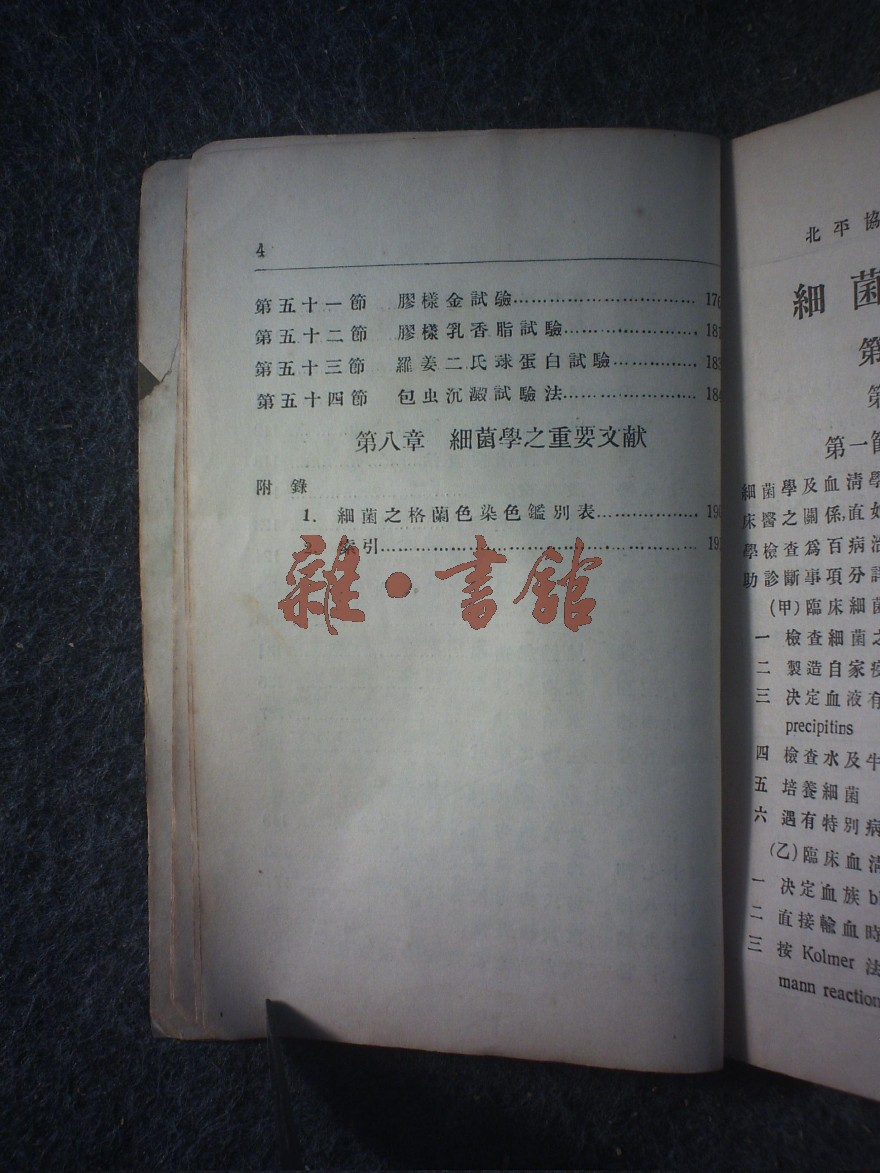 4
第五十一節 膠樣金試驗 17
第五十二節 膠樣乳香脂試驗 18
第五十三節 羅姜二氏球蛋白試驗 183
第五十四節 包虫沉澱試驗法 184
第八章 細菌學之重要文献
附錄
1. 細菌之格蘭色染色鑑別表 190
索引 19
雜·書館
北平協
細菌
第
第
第一節
細菌學及血清學
床醫之關係,直如
學檢查爲百病治
助診斷事項分詳
(甲)臨床細菌
一 檢查細菌之
二 製造自家疫
三 决定血液有
precipitins
四 檢查水及牛
五 培養細菌
六 遇有特別病
(乙)臨床血清
一 决定血族 b
二 直接輸血時
三 按 Kolmer 法
mann reaction